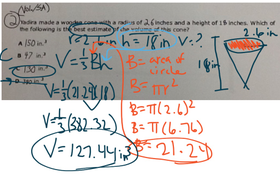 Vol/SA
2 Yadira made a wooden cone with a radius of 2.6 inches and a height of 18 inches. Which of the
following is the best estimate of the volume of this cone?
r=2.6in h=18in V=?
A 150 in³
B 47 in³
C 130 in³
V=⅓Bh
V=⅓(21.24)(18)
V=⅓(382.32)
V=127.44in³
B=area of
circle
B=πr²
B=π(2.6)²
B=π(6.76)
B=21.24
2.6in
18in